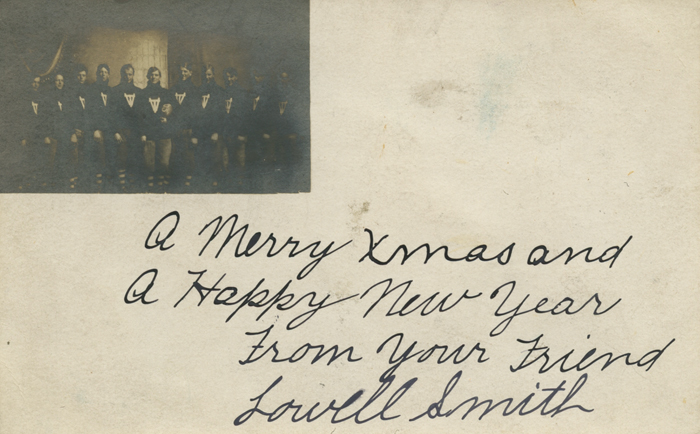 A Merry Xmas and
A Happy New Year
From Your Friend
Lowell Smith